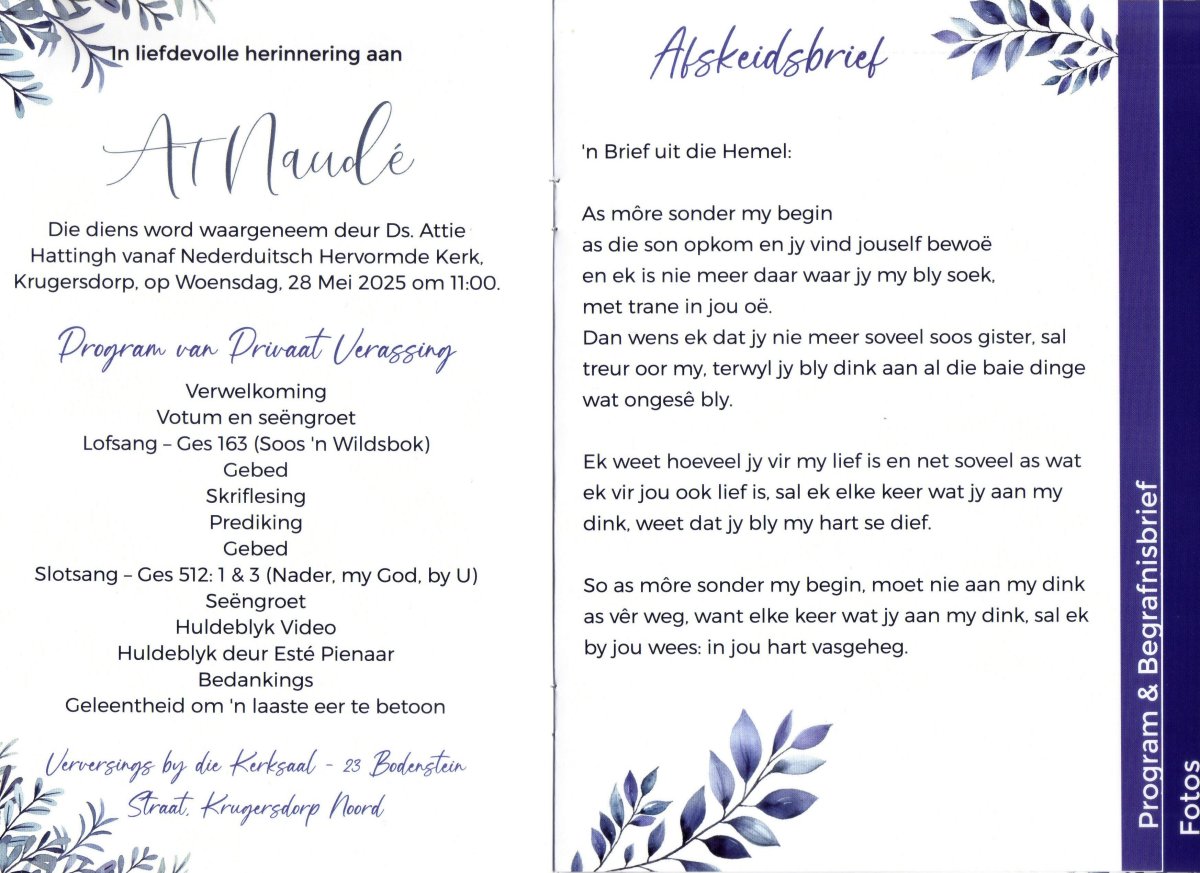 In liefdevolle herinnering aan
At Naudé
Die diens word waargeneem deur Ds. Attie
Hattingh vanaf Nederduitsch Hervormde Kerk,
Krugersdorp, op Woensdag, 28 Mei 2025 om 11:00.
Program van Privaat Verassing
Verwelkoming
Votum en seëngroet
Lofsang – Ges 163 (Soos 'n Wildsbok)
Gebed
Skriflesing
Prediking
Gebed
Slotsang – Ges 512: 1 & 3 (Nader, my God, by U)
Seëngroet
Huldeblyk Video
Huldeblyk deur Esté Pienaar
Bedankings
Geleentheid om 'n laaste eer te betoon
Verversings by die Kerksaal - 23 Bodenstein
Straat, Krugersdorp Noord
Afskeidsbrief
'n Brief uit die Hemel:
As môre sonder my begin
as die son opkom en jy vind jouself bewoë
en ek is nie meer daar waar jy my bly soek,
met trane in jou oë.
Dan wens ek dat jy nie meer soveel soos gister, sal
treur oor my, terwyl jy bly dink aan al die baie dinge
wat ongesê bly.
Ek weet hoeveel jy vir my lief is en net soveel as wat
ek vir jou ook lief is, sal ek elke keer wat jy aan my
dink, weet dat jy bly my hart se dief.
So as môre sonder my begin, moet nie aan my dink
as vêr weg, want elke keer wat jy aan my dink, sal ek
by jou wees: in jou hart vasgeheg.
Program & Begrafnisbrief
Fotos